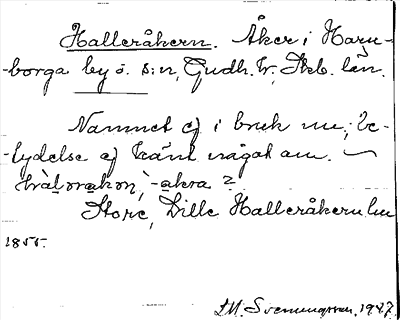 Halleråkern. Åker i Haru-
borga by ö. s:n, Gudh. hr, Skb. län.
Namnet ej i bruk nu; be-
tydelse ej känt något om.
-akra?
Store, Lille Halleråkern lm
1855.
I.M. Svenungsson, 1927.